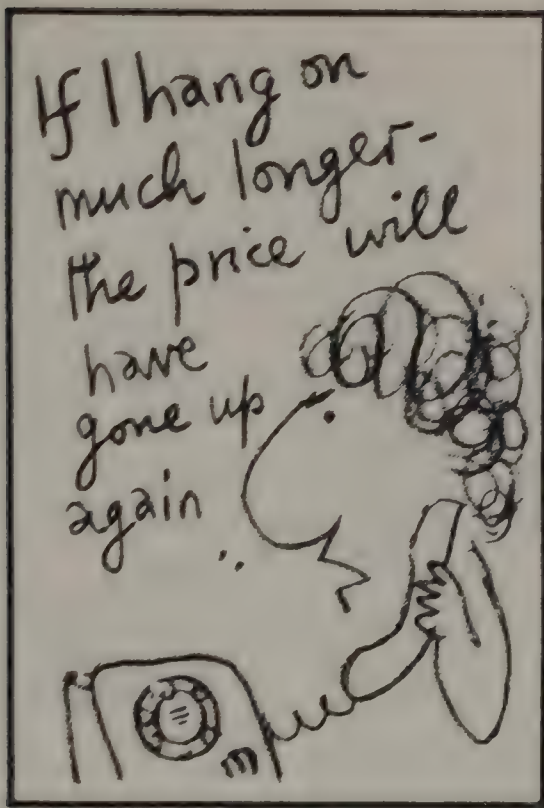 If I hang on
much longer-
the price will
have
gone up
again
..
m